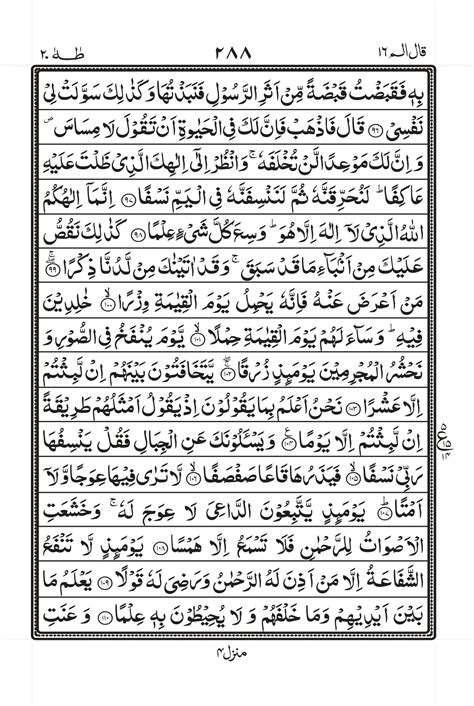 قال الم ١٦ ٢٨٨ طٰهٰ ٢٠
بِهٖ فَقَبَضْتُ قَبْضَةً مِّنْ اَثَرِ الرَّسُوْلِ فَنَبَذْتُهَا وَكَذٰلِكَ سَوَّلَتْ لِیْ
نَفْسِیْ ﴿۹۶﴾ قَالَ فَاذْهَبْ فَاِنَّ لَكَ فِی الْحَیٰوةِ اَنْ تَقُوْلَ لَا مِسَاسَ ۪
وَ اِنَّ لَكَ مَوْعِدًا لَّنْ تُخْلَفَهٗ ۚ وَانْظُرْ اِلٰۤی اِلٰهِكَ الَّذِیْ ظَلْتَ عَلَیْهِ
عَاكِفًا ؕ لَنُحَرِّقَنَّهٗ ثُمَّ لَنَنْسِفَنَّهٗ فِی الْیَمِّ نَسْفًا ﴿۹۷﴾ اِنَّمَاۤ اِلٰهُكُمُ
اللّٰهُ الَّذِیْ لَاۤ اِلٰهَ اِلَّا هُوَ ؕ وَسِعَ كُلَّ شَیْءٍ عِلْمًا ﴿۹۸﴾ كَذٰلِكَ نَقُصُّ
عَلَیْكَ مِنْ اَنْۢبَآءِ مَا قَدْ سَبَقَ ۚ وَقَدْ اٰتَیْنٰكَ مِنْ لَّدُنَّا ذِكْرًا ﴿۹۹﴾
مَنْ اَعْرَضَ عَنْهُ فَاِنَّهٗ یَحْمِلُ یَوْمَ الْقِیٰمَةِ وِزْرًا ﴿۱۰۰﴾ خٰلِدِیْنَ
فِیْهِ ؕ وَسَآءَ لَهُمْ یَوْمَ الْقِیٰمَةِ حِمْلًا ﴿۱۰۱﴾ یَّوْمَ یُنْفَخُ فِی الصُّوْرِ وَ
نَحْشُرُ الْمُجْرِمِیْنَ یَوْمَئِذٍ زُرْقًا ﴿۱۰۲﴾ یَّتَخَافَتُوْنَ بَیْنَهُمْ اِنْ لَّبِثْتُمْ
اِلَّا عَشْرًا ﴿۱۰۳﴾ نَحْنُ اَعْلَمُ بِمَا یَقُوْلُوْنَ اِذْ یَقُوْلُ اَمْثَلُهُمْ طَرِیْقَةً
اِنْ لَّبِثْتُمْ اِلَّا یَوْمًا ﴿۱۰۴﴾ وَیَسْـَٔلُوْنَكَ عَنِ الْجِبَالِ فَقُلْ یَنْسِفُهَا
رَبِّیْ نَسْفًا ﴿۱۰۵﴾ فَیَذَرُهَا قَاعًا صَفْصَفًا ﴿۱۰۶﴾ لَّا تَرٰی فِیْهَا عِوَجًا وَّلَاۤ
اَمْتًا ﴿۱۰۷﴾ یَوْمَئِذٍ یَّتَّبِعُوْنَ الدَّاعِیَ لَا عِوَجَ لَهٗ ۚ وَخَشَعَتِ
الْاَصْوَاتُ لِلرَّحْمٰنِ فَلَا تَسْمَعُ اِلَّا هَمْسًا ﴿۱۰۸﴾ یَوْمَئِذٍ لَّا تَنْفَعُ
الشَّفَاعَةُ اِلَّا مَنْ اَذِنَ لَهُ الرَّحْمٰنُ وَرَضِیَ لَهٗ قَوْلًا ﴿۱۰۹﴾ یَعْلَمُ مَا
بَیْنَ اَیْدِیْهِمْ وَمَا خَلْفَهُمْ وَ لَا یُحِیْطُوْنَ بِهٖ عِلْمًا ﴿۱۱۰﴾ وَ عَنَتِ
منزل ٤